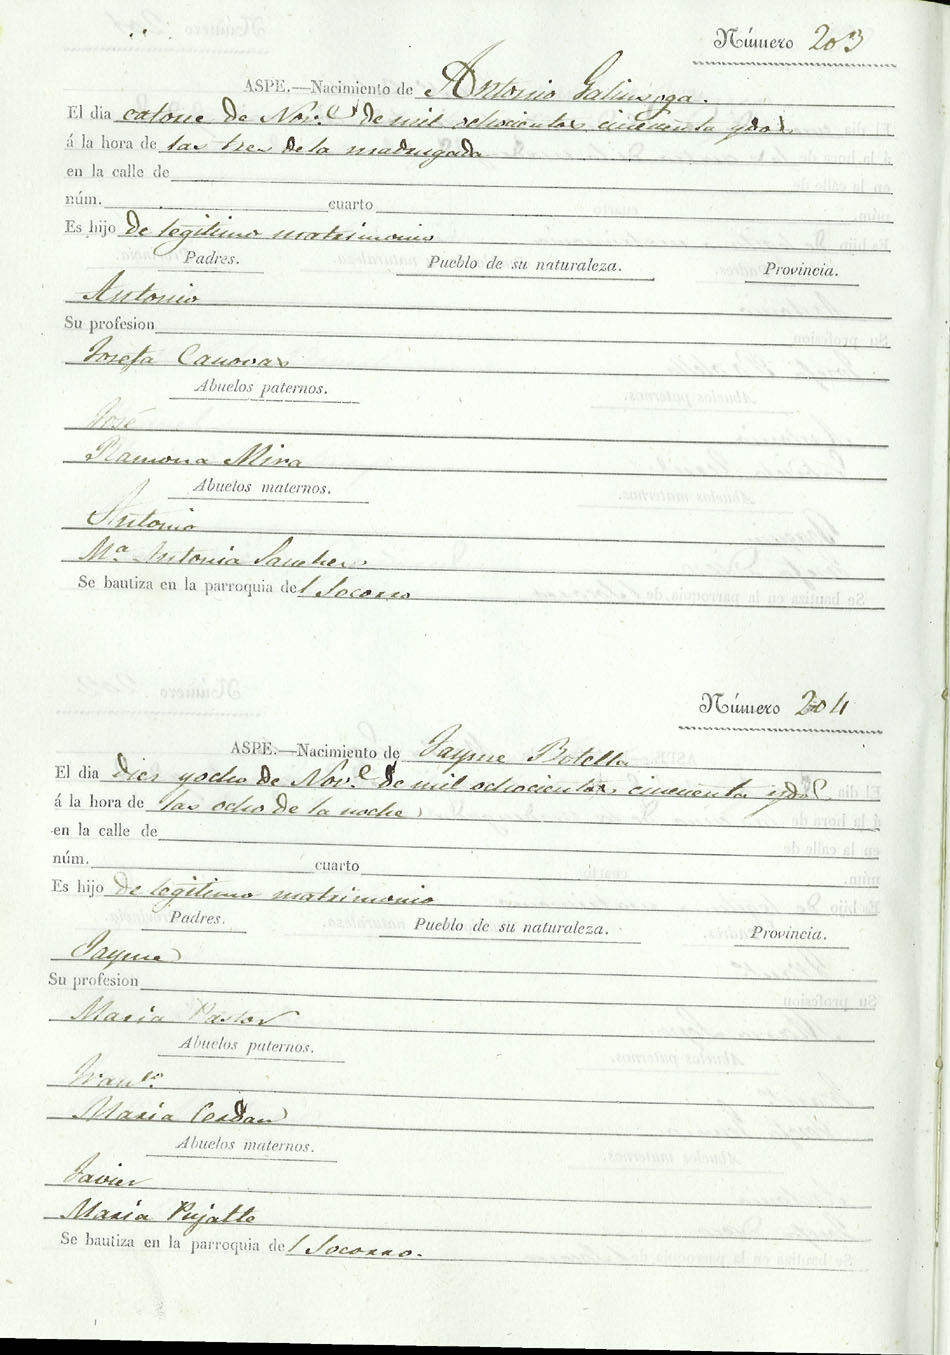 Número 203
ASPE.—Nacimiento de Antonio Galinsoga.
El dia catorce de Nov.e de mil ochocientos cincuenta y dos
á la hora de las tres de la madrugada
en la calle de
núm. cuarto
Es hijo de legitimo matrimonio
Padres. Pueblo de su naturaleza. Provincia.
Antonio
Su profesion
Josefa Canovas
Abuelos paternos.
José
Ramona Mira
Abuelos maternos.
Antonio
M.a Antonia Sanchez
Se bautiza en la parroquia del Socorro
Número 204
ASPE.—Nacimiento de Jayme Botella
El dia diez y ocho de Nov.e de mil ochocientos cincuenta y dos
á la hora de las ocho de la noche
en la calle de
núm. cuarto
Es hijo de legitimo matrimonio
Padres. Pueblo de su naturaleza. Provincia.
Jayme
Su profesion
Maria Pastor
Abuelos paternos.
Fran.co
Maria Cerdan
Abuelos maternos.
Javier
Maria Pujalte
Se bautiza en la parroquia del Socorro.